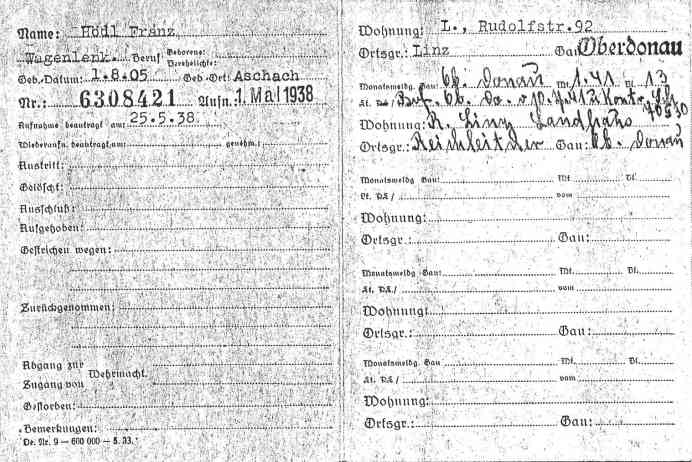 Name: Hödl Franz
Wagenlenk. Beruf Geborene: Verehelichte:
Geb.-Datum: 1.8.05 Geb.-Ort: Aschach
Nr.: 6308421 Aufn.: 1. Mai 1938
Aufnahme beantragt am: 25.5.38
Wiederaufn. beantragt am: genehm.:
Austritt:
Gelöscht:
Ausschluß:
Aufgehoben:
Gestrichen wegen:
Zurückgenommen:
Abgang zur
Wehrmacht.
Zugang von
Gestorben:
Bemerkungen:
Wohnung: L., Rudolfstr. 92
Ortsgr.: Linz Gau: Oberdonau
Monatsmeldg. Gau: Ob. Donau Mt. 1.41 Bl. 13
Wohnung: R. Linz Landhaus
Ortsgr.: Reichleitder Gau: Ob. Donau
Monatsmeldg. Gau: Mt. Bl.
Lt. RL/ vom
Wohnung:
Ortsgr.: Gau:
Monatsmeldg. Gau: Mt. Bl.
Lt. RL/ vom
Wohnung:
Ortsgr.: Gau:
Monatsmeldg. Gau Mt. Bl.
Lt. RL/ vom
Wohnung:
Ortsgr.: Gau: